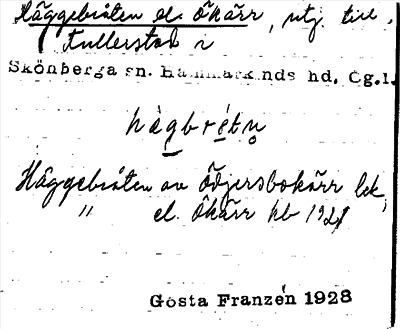 Häggebråten el. Ökärr, utj. till
Fullerstad i
Skönberga sn. Hammarkinds hd, Ög.l.
hàgbrétn̥
Häggebråten av Ödjersbokärr lek,
" el. Ökärr hb 1921
Gösta Franzén 1928